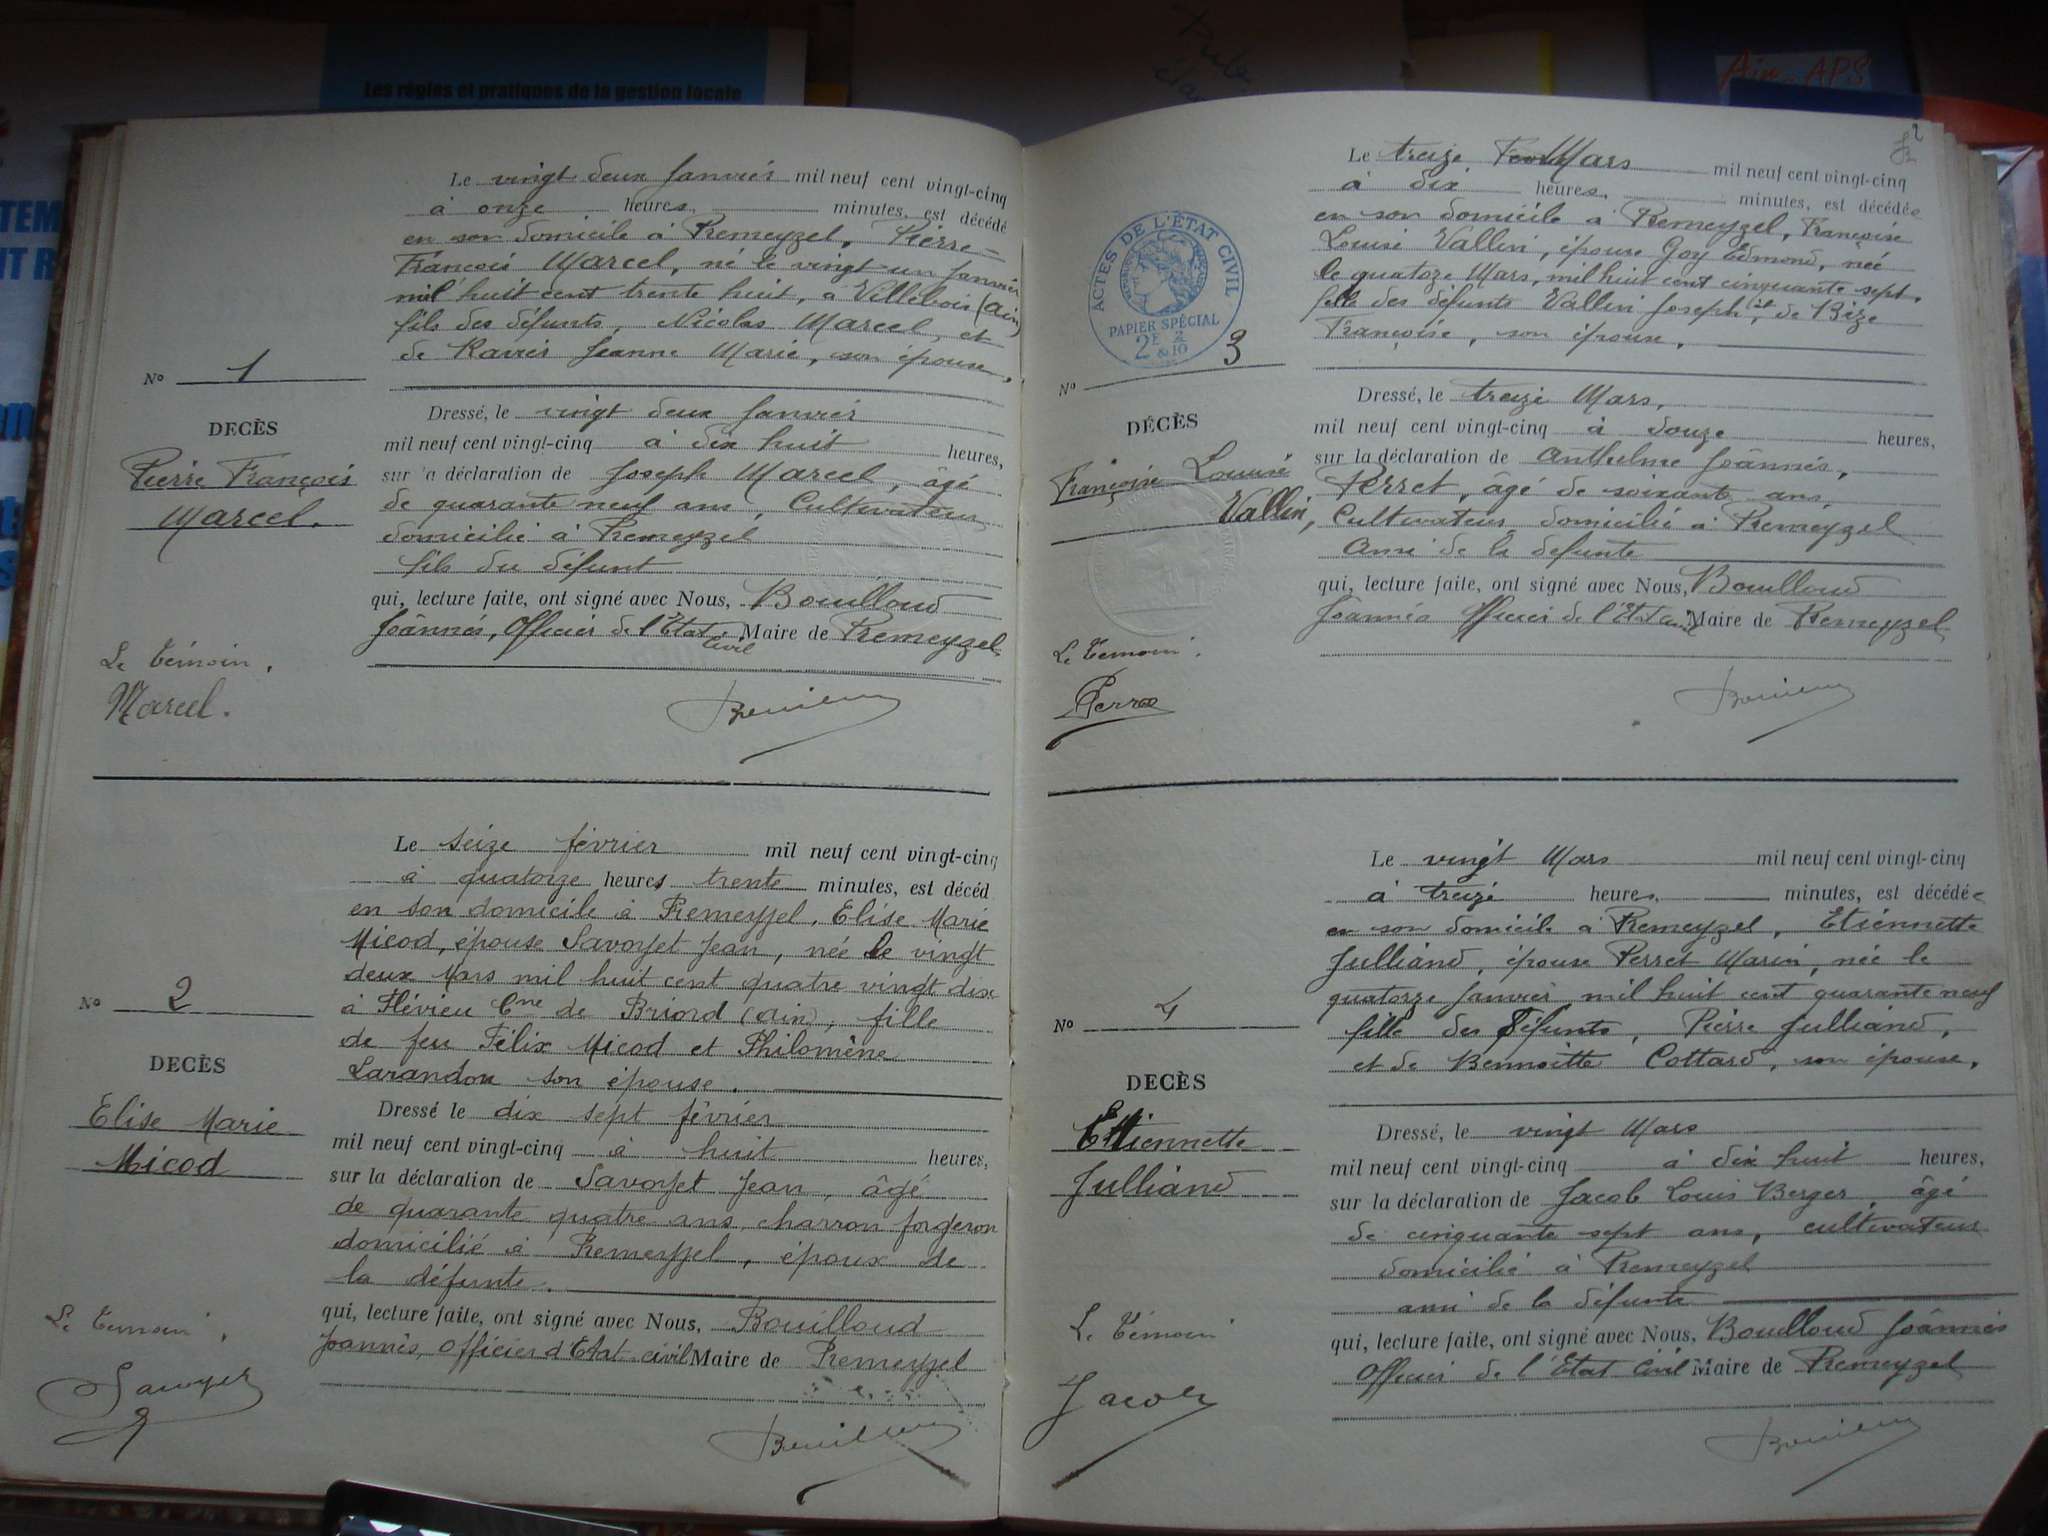 Les règles et pratiques de la gestion locale
Ain APS
Le vingt deux Janvier mil neuf cent vingt-cinq
à onze heures, minutes, est décédé
en son domicile à Premeyzel, Pierre-
François Marcel, né le vingt un Janvier
mil huit cent trente huit, à Villebois (Ain)
fils des défunts, Nicolas Marcel, et
de Ravier Jeanne Marie, son épouse.
No 1
DÉCÈS
Pierre François
Marcel.
Dressé, le vingt deux Janvier
mil neuf cent vingt-cinq à dix huit heures,
sur la déclaration de Joseph Marcel, âgé
de quarante neuf ans, Cultivateur
domicilié à Premeyzel
fils du défunt
qui, lecture faite, ont signé avec Nous, Bouilloud
Joännès, Officier de l'Etat Civil Maire de Premeyzel
Le témoin.
Marcel.
Le seize février mil neuf cent vingt-cinq
à quatorze heures trente minutes, est décéd
en son domicile à Premeyzel, Elise Marie
Micod, épouse Savoyet Jean, née le vingt
deux Mars mil huit cent quatre vingt dix
à Flévieu Cne de Briord (Ain), fille
de feu Félix Micod et Philomène
Larandon son épouse.
No 2
DECÈS
Elise Marie
Micod
Dressé le dix sept février
mil neuf cent vingt-cinq à huit heures,
sur la déclaration de Savoyet Jean, âgé
de quarante quatre ans, charron forgeron
domicilié à Premeyzel, époux de
la défunte.
qui, lecture faite, ont signé avec Nous, Bouilloud
Joannès, Officier d'Etat civil Maire de Premeyzel
Le témoin,
2
Le treize Mars mil neuf cent vingt-cinq
à dix heures, minutes, est décédée
en son domicile à Premeyzel, Françoise
Louise Vallin, épouse Goy Edmond, née
le quatorze Mars, mil huit cent cinquante sept.
fille des défunts Vallin Joseph, et de Bize
Françoise, son épouse.
ACTES DE L'ÉTAT CIVIL
PAPIER SPÉCIAL
2E 2/10
No 3
DÉCÈS
Françoise Louise
Vallin,
Dressé, le treize Mars,
mil neuf cent vingt-cinq à douze heures,
sur la déclaration de Anthelme Joännès,
Perret, âgé de soixante ans,
Cultivateur domicilié à Premeyzel
Ami de la défunte
qui, lecture faite, ont signé avec Nous, Bouilloud
Joannès Officier de l'Etat civil Maire de Premeyzel
Le témoin.
Le vingt Mars mil neuf cent vingt-cinq
à treize heures, minutes, est décédée
en son domicile à Premeyzel, Etiennette
Julliand, épouse Perret Marin, née le
quatorze Janvier mil huit cent quarante neuf
fille des défunts, Pierre Julliand,
et de Bennoitte Cottard, son épouse.
No 4
DECÈS
Etiennette
Julliand
Dressé, le vingt Mars
mil neuf cent vingt-cinq à dix huit heures,
sur la déclaration de Jacob Louis Berger, âgé
de cinquante sept ans, cultivateur
domicilié à Premeyzel
ami de la défunte
qui, lecture faite, ont signé avec Nous, Bouilloud Joännès
Officier de l'Etat Civil Maire de Premeyzel
Le témoin
Jacob